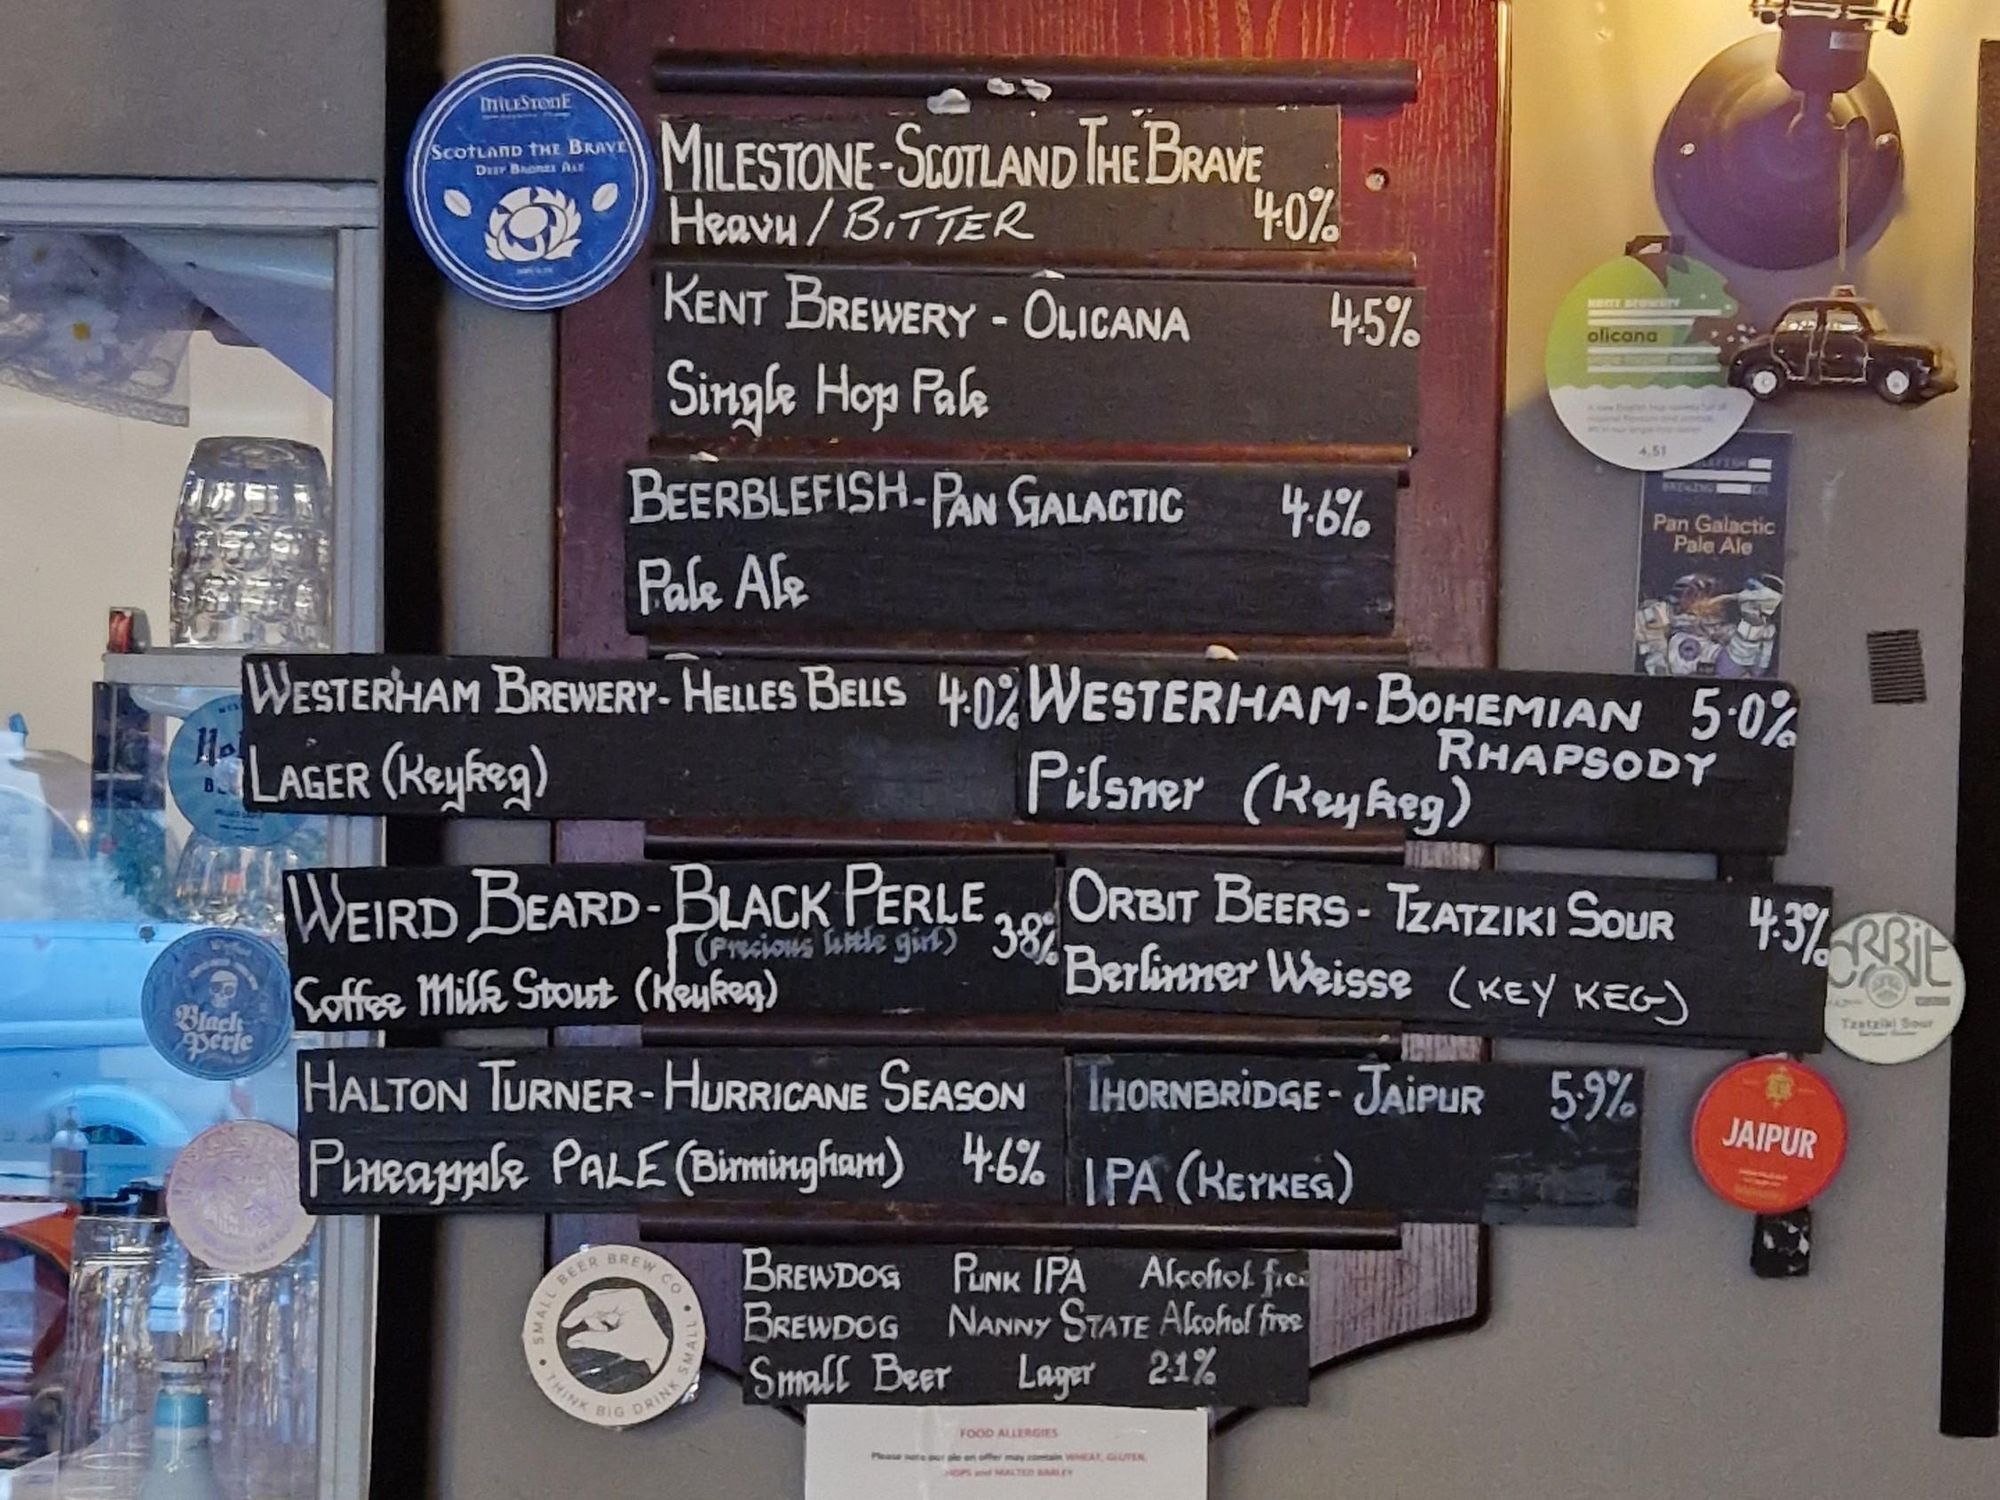 MILESTONE
SCOTLAND THE BRAVE
DEEP BRONZE ALE
MILESTONE - SCOTLAND THE BRAVE
Heavy / BITTER 4.0%
KENT BREWERY - OLICANA 4.5%
Single Hop Pale
KENT BREWERY
olicana
4.51
BEERBLEFISH - PAN GALACTIC 4.6%
Pale Ale
BREWING CO.
Pan Galactic
Pale Ale
WESTERHAM BREWERY - HELLES BELLS 4.0%
LAGER (Keykeg)
WESTERHAM - BOHEMIAN 5.0%
RHAPSODY
Pilsner (Keykeg)
WEIRD BEARD - BLACK PERLE 3.8%
(Precious little girl)
Coffee Milk Stout (Keykeg)
Black
Perle
ORBIT BEERS - TZATZIKI SOUR 4.3%
Berlinner Weisse (KEY KEG)
ORBIT
Tzatziki Sour
HALTON TURNER - HURRICANE SEASON
Pineapple PALE (Birmingham) 4.6%
THORNBRIDGE - JAIPUR 5.9%
IPA (KEYKEG)
JAIPUR
BREWDOG PUNK IPA Alcohol free
BREWDOG NANNY STATE Alcohol free
Small Beer Lager 2.1%
SMALL BEER BREW CO
THINK BIG DRINK SMALL
FOOD ALLERGIES
Please note our ale on offer may contain WHEAT, GLUTEN,
HOPS and MALTED BARLEY